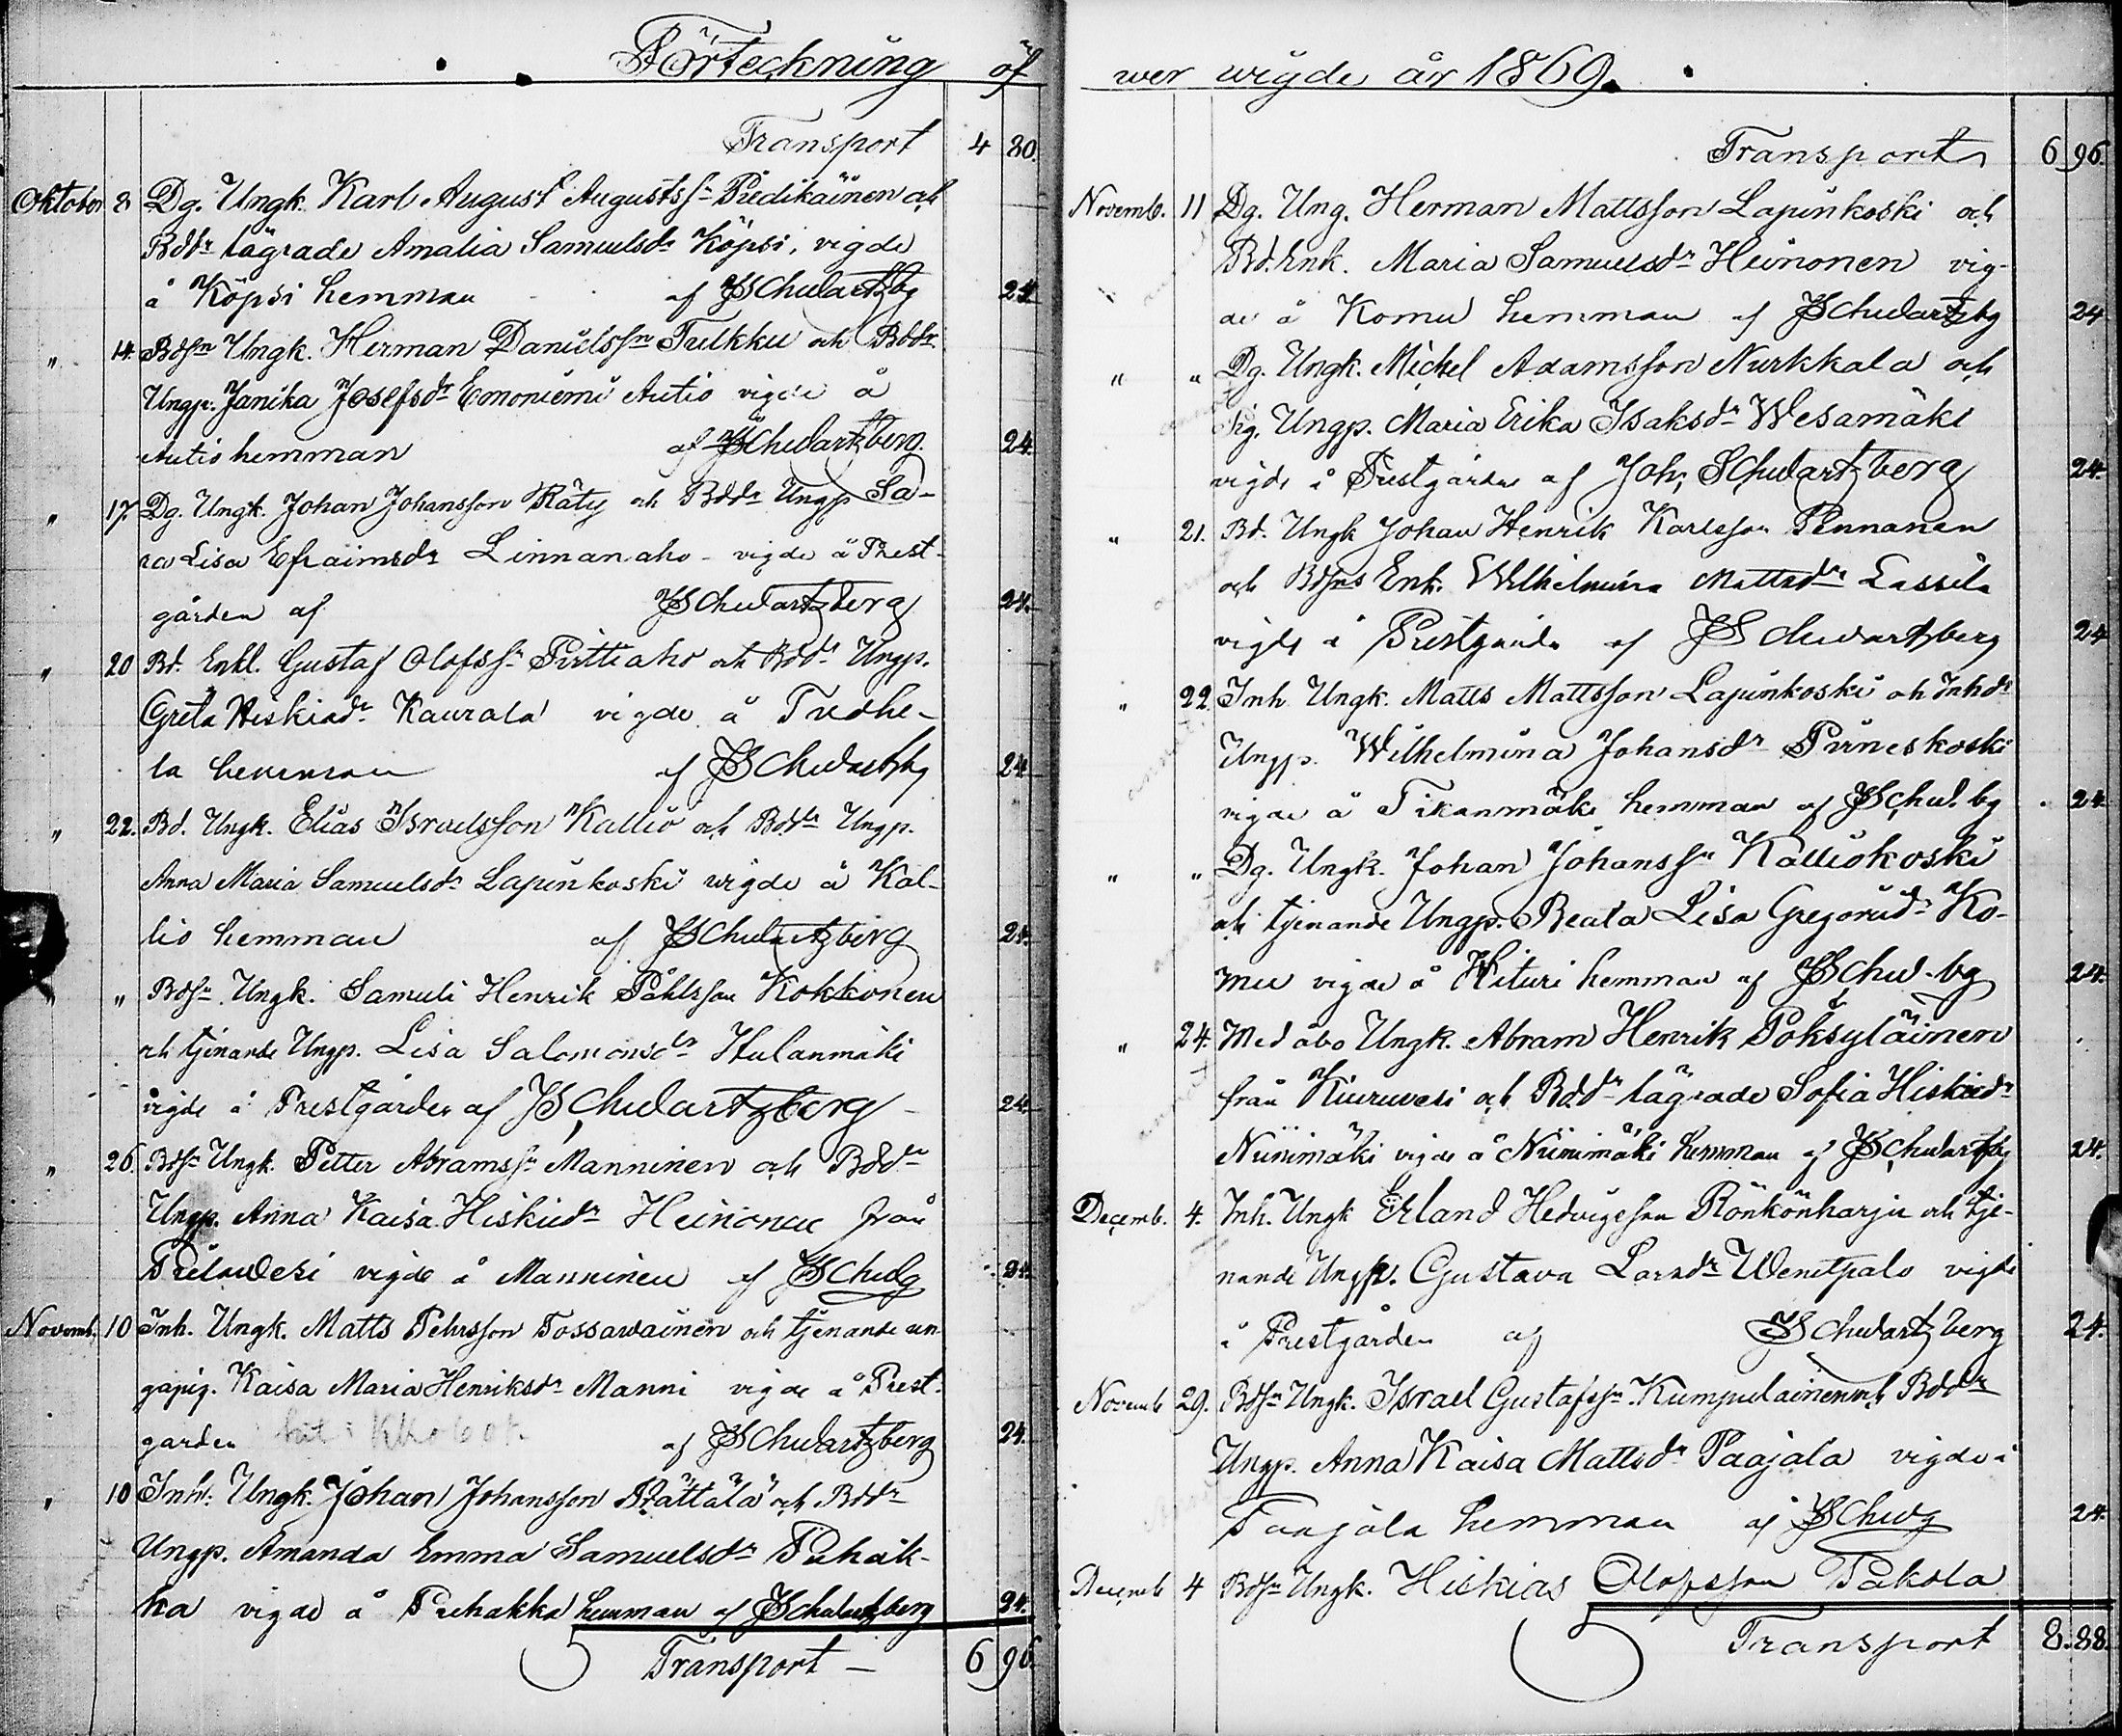 Förteckning öf
Transport 4 80.
Oktober 8 Dg. Ungk. Karl August Augustss:n Piedikäinen och
Bdd:r lägrade Amalia Samuelsd:r Köpsi, vigde
å Köpsi hemman af JSchwartzbg 24
" 14. Bds:n Ungk. Herman Danielss:n Tulkku och Bdd:r
Ungp. Janika Josefsd:r Emoniemi Autio vigde å
Autio hemman af JSchwartzberg. 24.
" 17. Dg. Ungk. Johan Johansson Räty och Bdd:r Ungp Sa-
ra Lisa Efraimsd:r Linnanaho - vigde å Prest-
gården af JSchwartzberg 24.
" 20 Bd. Enkl. Gustaf Olofss:n Pirttiaho och Bdd:r Ungp.
Greta Hiskiasd:r Kaurala vigde å
la hemman af JSchwartzbg 24
" 22. Bd. Ungk. Elias Israelsson Kallio och Bdd:r Ungp.
Anna Maria Samuelsd:r Lapinkoski vigde å Kal-
lio hemman af JSchwartzberg 24.
" " Bds:n Ungk. Samuli Henrik Påhlsson Kokkonen
och tjenande Ungp. Lisa Salomonsd:r Hulanmäki
vigde å Prestgården af JSchwartzberg 24.
" 26. Bds:n Ungk. Petter Abramss:n Manninen och Bdd:r
Ungp. Anna Kaisa Hiskiasd:r Heinonen från
Pielavesi vigde å Manninen af JSchwg 24.
Novemb. 10 Inh. Ungk. Matts Pehrsson Tossavainen och tjenande un
gapig. Kaisa Maria Henriksd:r Manni vigde å Prest-
garden af JSchwartzberg 24.
" 10 Inh. Ungk. Johan Johansson Rättälä och Bdd:r
Ungp. Amanda Emma Samuelsd:r Puhak-
ka vigde å Puhakka hemman af JSchwartzberg 24.
Transport — 6 96.
wer wigde år 1869.
Transport 6 96.
Novemb. 11 Dg. Ung. Herman Mattsson Lapinkoski och
Bd. Enk. Maria Samuelsd:r Heinonen vig-
de å Komu hemman af JSchwartzbg 24
" " Dg. Ungk. Michel Adamsson Nurkkala och
Pig. Ungp. Maria Erika Isaksd:r Wesamäki
vigde å Prestgården af Joh. Schwartzberg 24.
" 21. Bd. Ungk Johan Henrik Karlsson Pennanen
och Bdsns Enk. Wilhelmina Mattsd:r Lassila
vigde å Prestgården af JSchwartzberg 24
" 22 Inh Ungk. Matts Mattsson Lapinkoski och Inhd:r
Ungp. Wilhelmina Johansd:r Pirneskoski
vigde å Tikanmäki hemman af JSchw.bg 24
" " Dg. Ungk. Johan Johanss:n Kalliokoski
och tjenande Ungp. Beata Lisa Gregoriid:r Ko-
mu vigde å Hituri hemman af JSchw.bg 24.
" 24. Med åbo Ungk. Abram Henrik Poksyläinen
från Kiuruvesi och Bdd:r lägrade Sofia Hiskiasd:r
Niinimäki vigde å Niinimäki hemman af JSchwartzbg 24.
Decemb. 4. Inh. Ungk Erland Hedvigsson Rönkönharju och tje-
nande Ungp. Gustava Larsd:r Wenetpalo vigde
å Prestgården af JSchwartzberg 24.
Novemb 29. Bds:n Ungk. Israel Gustafss:n Kumpulainen och Bdd:r
Ungp. Anna Kaisa Mattsd:r Paajala vigde å
Paajala hemman af JSchwg 24.
Decemb 4 Bds:n Ungk. Hiskias Olofsson Pakola
Transport 8.88.